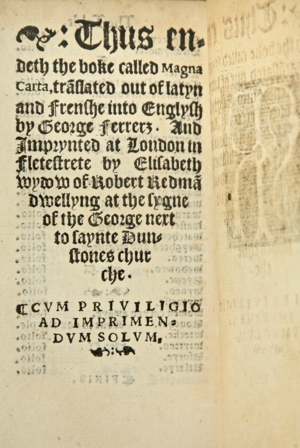 :Thus en-
deth the boke called Magna
Carta, trāslated out of latyn
and Frenshe into Englysh
by George Ferrerz. And
Imprynted at London in
Fletestrete by Elisabeth
wydow of Robert Redmā
dwellyng at the sygne
of the George next
to saynte Dun-
stones chur
che.
CVM PRIVILIGIO
AD IMPRIMEN-
DVM SOLVM,